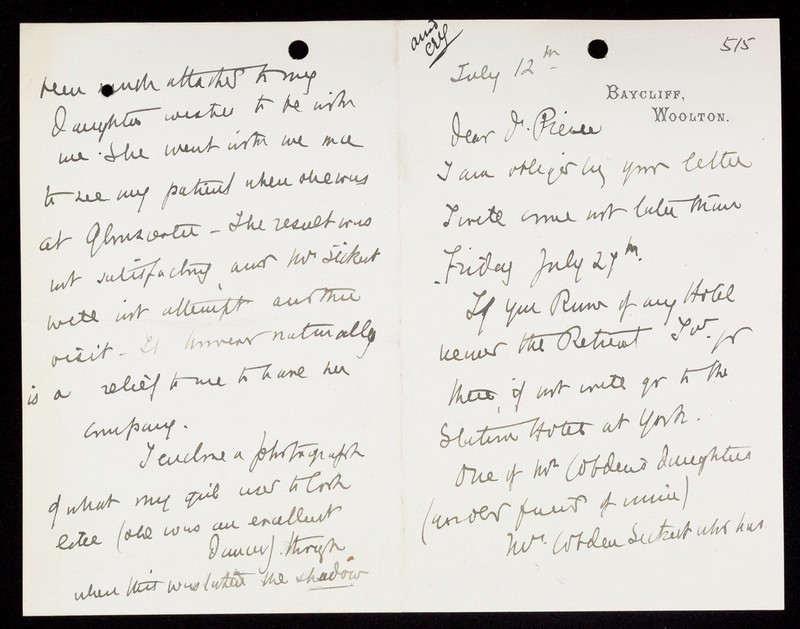 ansd
515
July 12th
BAYCLIFF,
WOOLTON.
Dear Dr. Pierce
I am obliged by your letter
I will come not later than
Friday July 27th.
If you know of any Hotel
nearer the Retreat I wd. go
there, if not will go to the
Station Hotel at York.
One of Mr Cobden's daughters
(an old friend of mine)
Mrs. Cobden Sickert who has
been much attached to my
Daughter wishes to be with
me. She went with me once
to see my patient when she was
at Gloucester - The result was
not satisfactory, and Mrs Sickert
will not attempt another
visit - It however naturally
is a relief to me to have her
company.
I enclose a photograph
of what my girl used to look
like (she was an excellent
Dancer). though
when this was taken the shadow